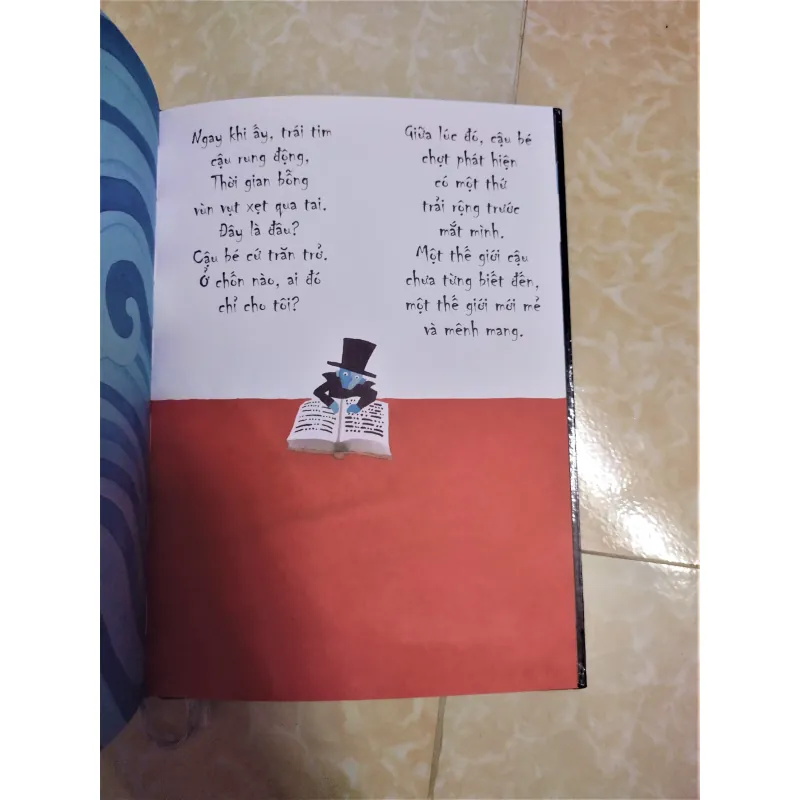 Ngay khi ấy, trái tim
cậu rung động,
Thời gian bỗng
vùn vụt xẹt qua tai.
Đây là đâu?
Cậu bé cứ trăn trở.
Ở chốn nào, ai đó
chỉ cho tôi?
Giữa lúc đó, cậu bé
chợt phát hiện
có một thứ
trải rộng trước
mắt mình.
Một thế giới cậu
chưa từng biết đến,
một thế giới mới mẻ
và mênh mang.